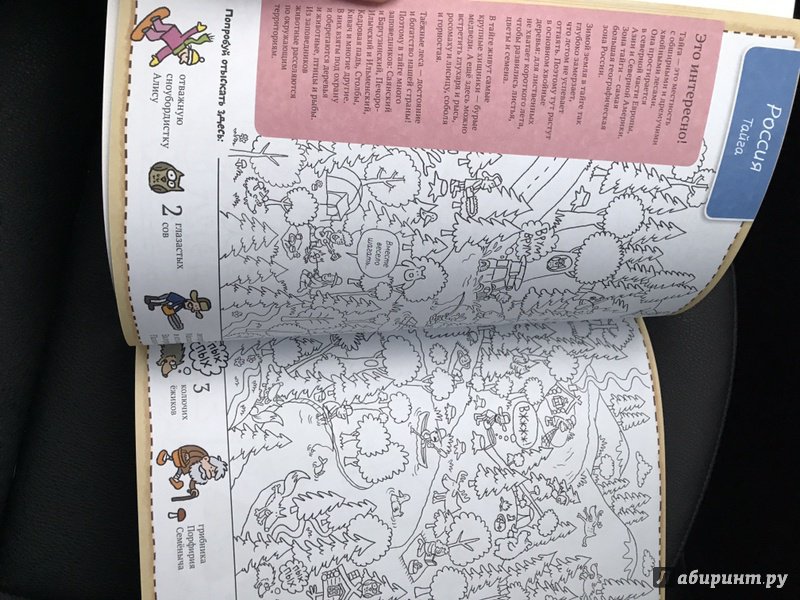 Россия
Тайга
Это интересно!
Тайга — это местность
с обширными и дремучими
хвойными лесами.
Она простирается
в северной части Европы,
Азии и Северной Америки.
Зона тайги — самая
большая географическая
зона России.
Зимой земля в тайге так
глубоко замерзает,
что летом не успевает
оттаять. Поэтому тут растут
в основном хвойные
деревья: для лиственных
не хватает короткого лета,
чтобы развились листья,
цветы и семена.
В тайге живут самые
крупные хищники — бурые
медведи. А ещё здесь можно
встретить глухаря и рысь,
росомаху и лисицу, соболя
и горностая.
Таёжные леса — достояние
и богатство нашей страны!
Поэтому в тайге много
заповедников: Саянский
и Баргузинский, Печоро-
Илычский и Ильменский,
Кедровая падь, Столбы,
Кивач и многие другие.
В них взяты под охрану
и оберегаются деревья
и животные, птицы и рыбы.
Из заповедников
животные расселяются
по окружающим
территориям.
Врум
Врум
Вместе
весело
шагать
Вжжж!
Попробуй отыскать здесь:
отважную
сноубордистку
Алису
2 глазастых
сов
пых
3 колючих
ёжиков
грибника
Порфирия
Семёныча
Лабиринт.ру